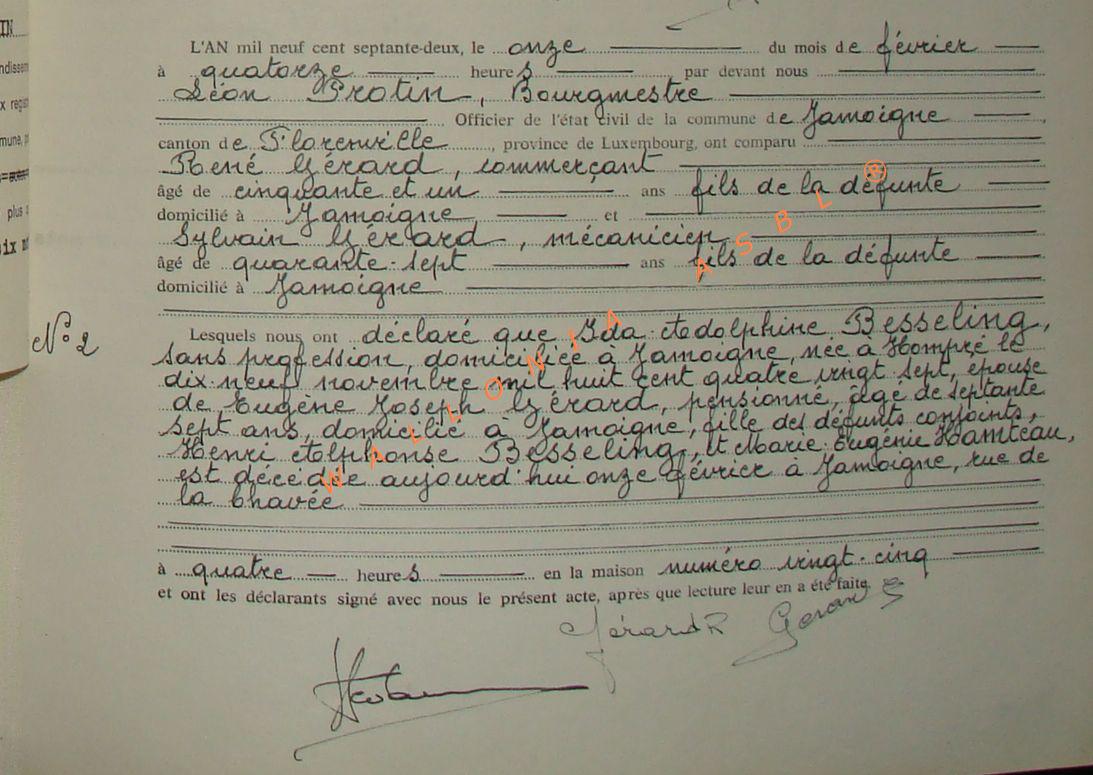 IN
ndissem
x regis
mune, p
plus
ix n
L'AN mil neuf cent septante-deux, le onze du mois de février
à quatorze heures par devant nous
Léon Protin, Bourgmestre
Officier de l'état civil de la commune de Jamoigne,
canton de Florenville, province de Luxembourg, ont comparu
René Gérard, commerçant
âgé de cinquante et un ans fils de la défunte
domicilié à Jamoigne, et
Sylvain Gérard, mécanicien
âgé de quarante-sept ans fils de la défunte
domicilié à Jamoigne
N° 2
Lesquels nous ont déclaré que Ida Adolphine Besseling,
sans profession, domiciliée à Jamoigne, née à Hompré le
dix-neuf novembre mil huit cent quatre vingt-sept, épouse
de Eugène Joseph Gérard, pensionné, âgé de septante
sept ans, domicilié à Jamoigne, fille des défunts conjoints,
Henri Alphonse Besseling, et Marie-Eugénie Hamteau,
est décédée aujourd'hui onze février à Jamoigne, rue de
la Chavée
à quatre heures en la maison numéro vingt-cinq
et ont les déclarants signé avec nous le présent acte, après que lecture leur en a été faite.
Gérard R Gerard S
WALLONIA ASBL ®